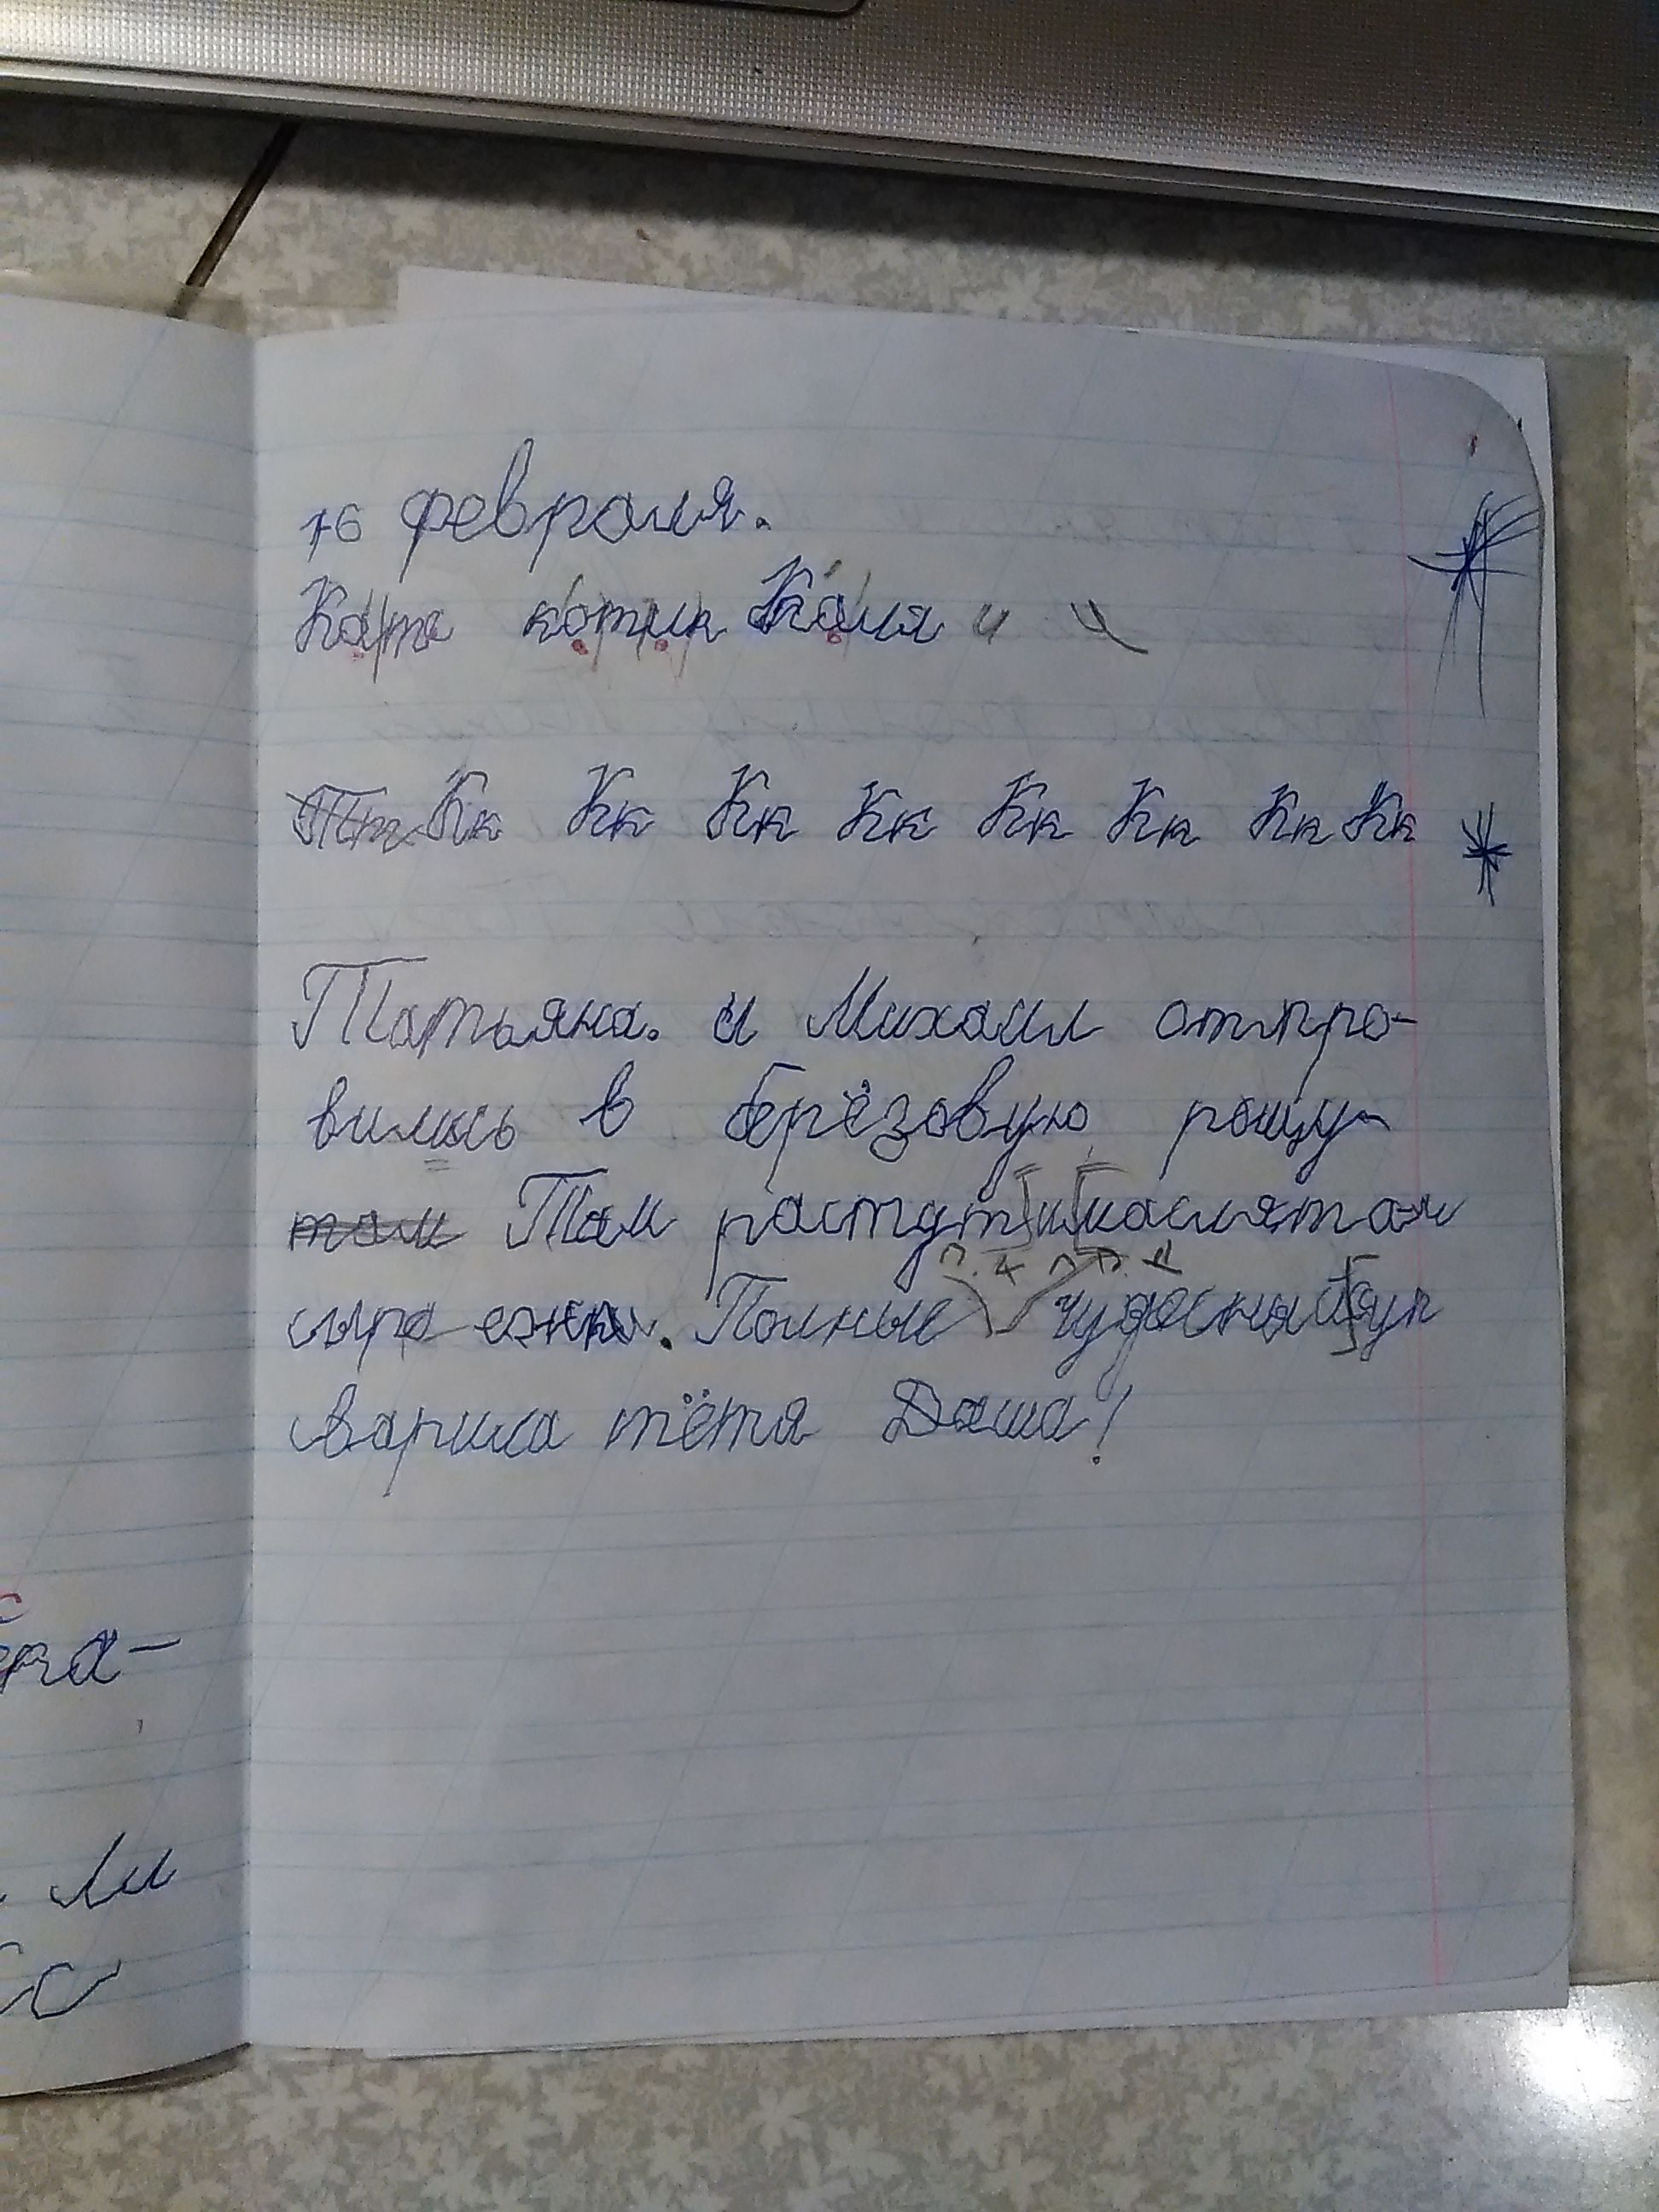 16 февраля.
Катя котик Каля и и
Тт Кк Кк Кк Кк Кк Кк Кк Кк
Татьяна. и Михаил отпра-
вились в берёзовую рощу
там Там растут и маслята и
сыро Полные чудесный суп
сварила тётя Даша!
ена-
Ли
Сс